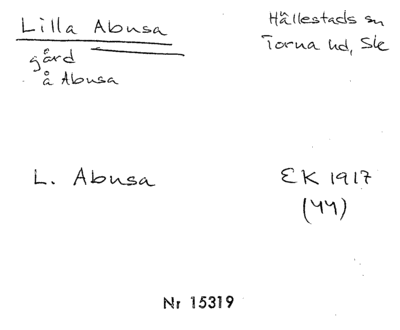 Lilla Abusa
gård
å Abusa
Hällestads sn
Torna hd, Ske
L. Abusa
EK 1917
(44)
Nr 15319